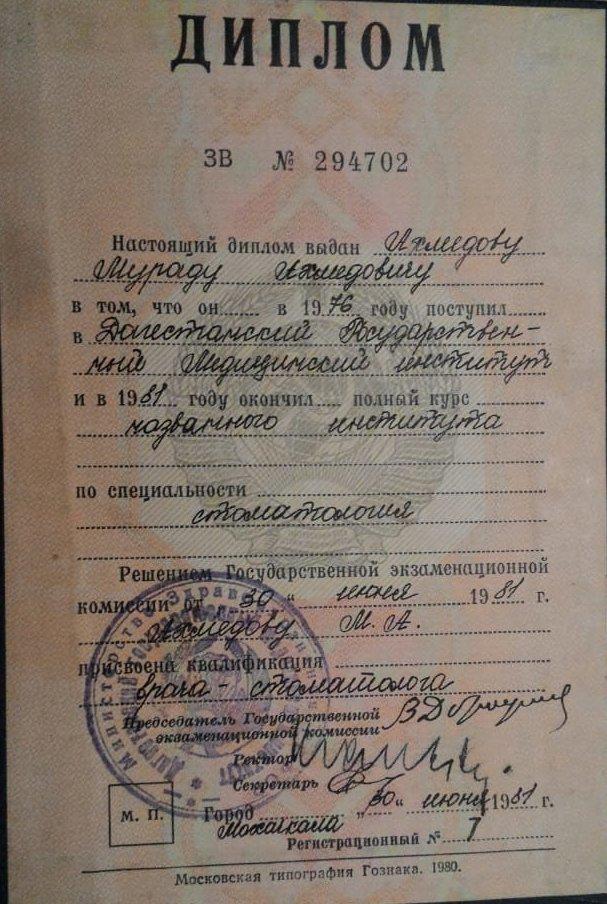 ДИПЛОМ
ЗВ № 294702
Настоящий диплом выдан Ахмедову
Мураду Ахмедовичу
в том, что он в 1976 году поступил
в Дагестанский Государствен-
ный Медицинский институт
и в 1981 году окончил полный курс
названного института
по специальности
стоматология
Решением Государственной экзаменационной
комиссии от "30" июня 1981 г.
Ахмедову М. А.
присвоена квалификация
врача-стоматолога
Председатель Государственной
экзаменационной комиссии
Ректор
Секретарь
"30" июня 1981 г.
М. П.
Город Махачкала
Регистрационный № 7
Московская типография Гознака. 1980.
Министерство Здрав